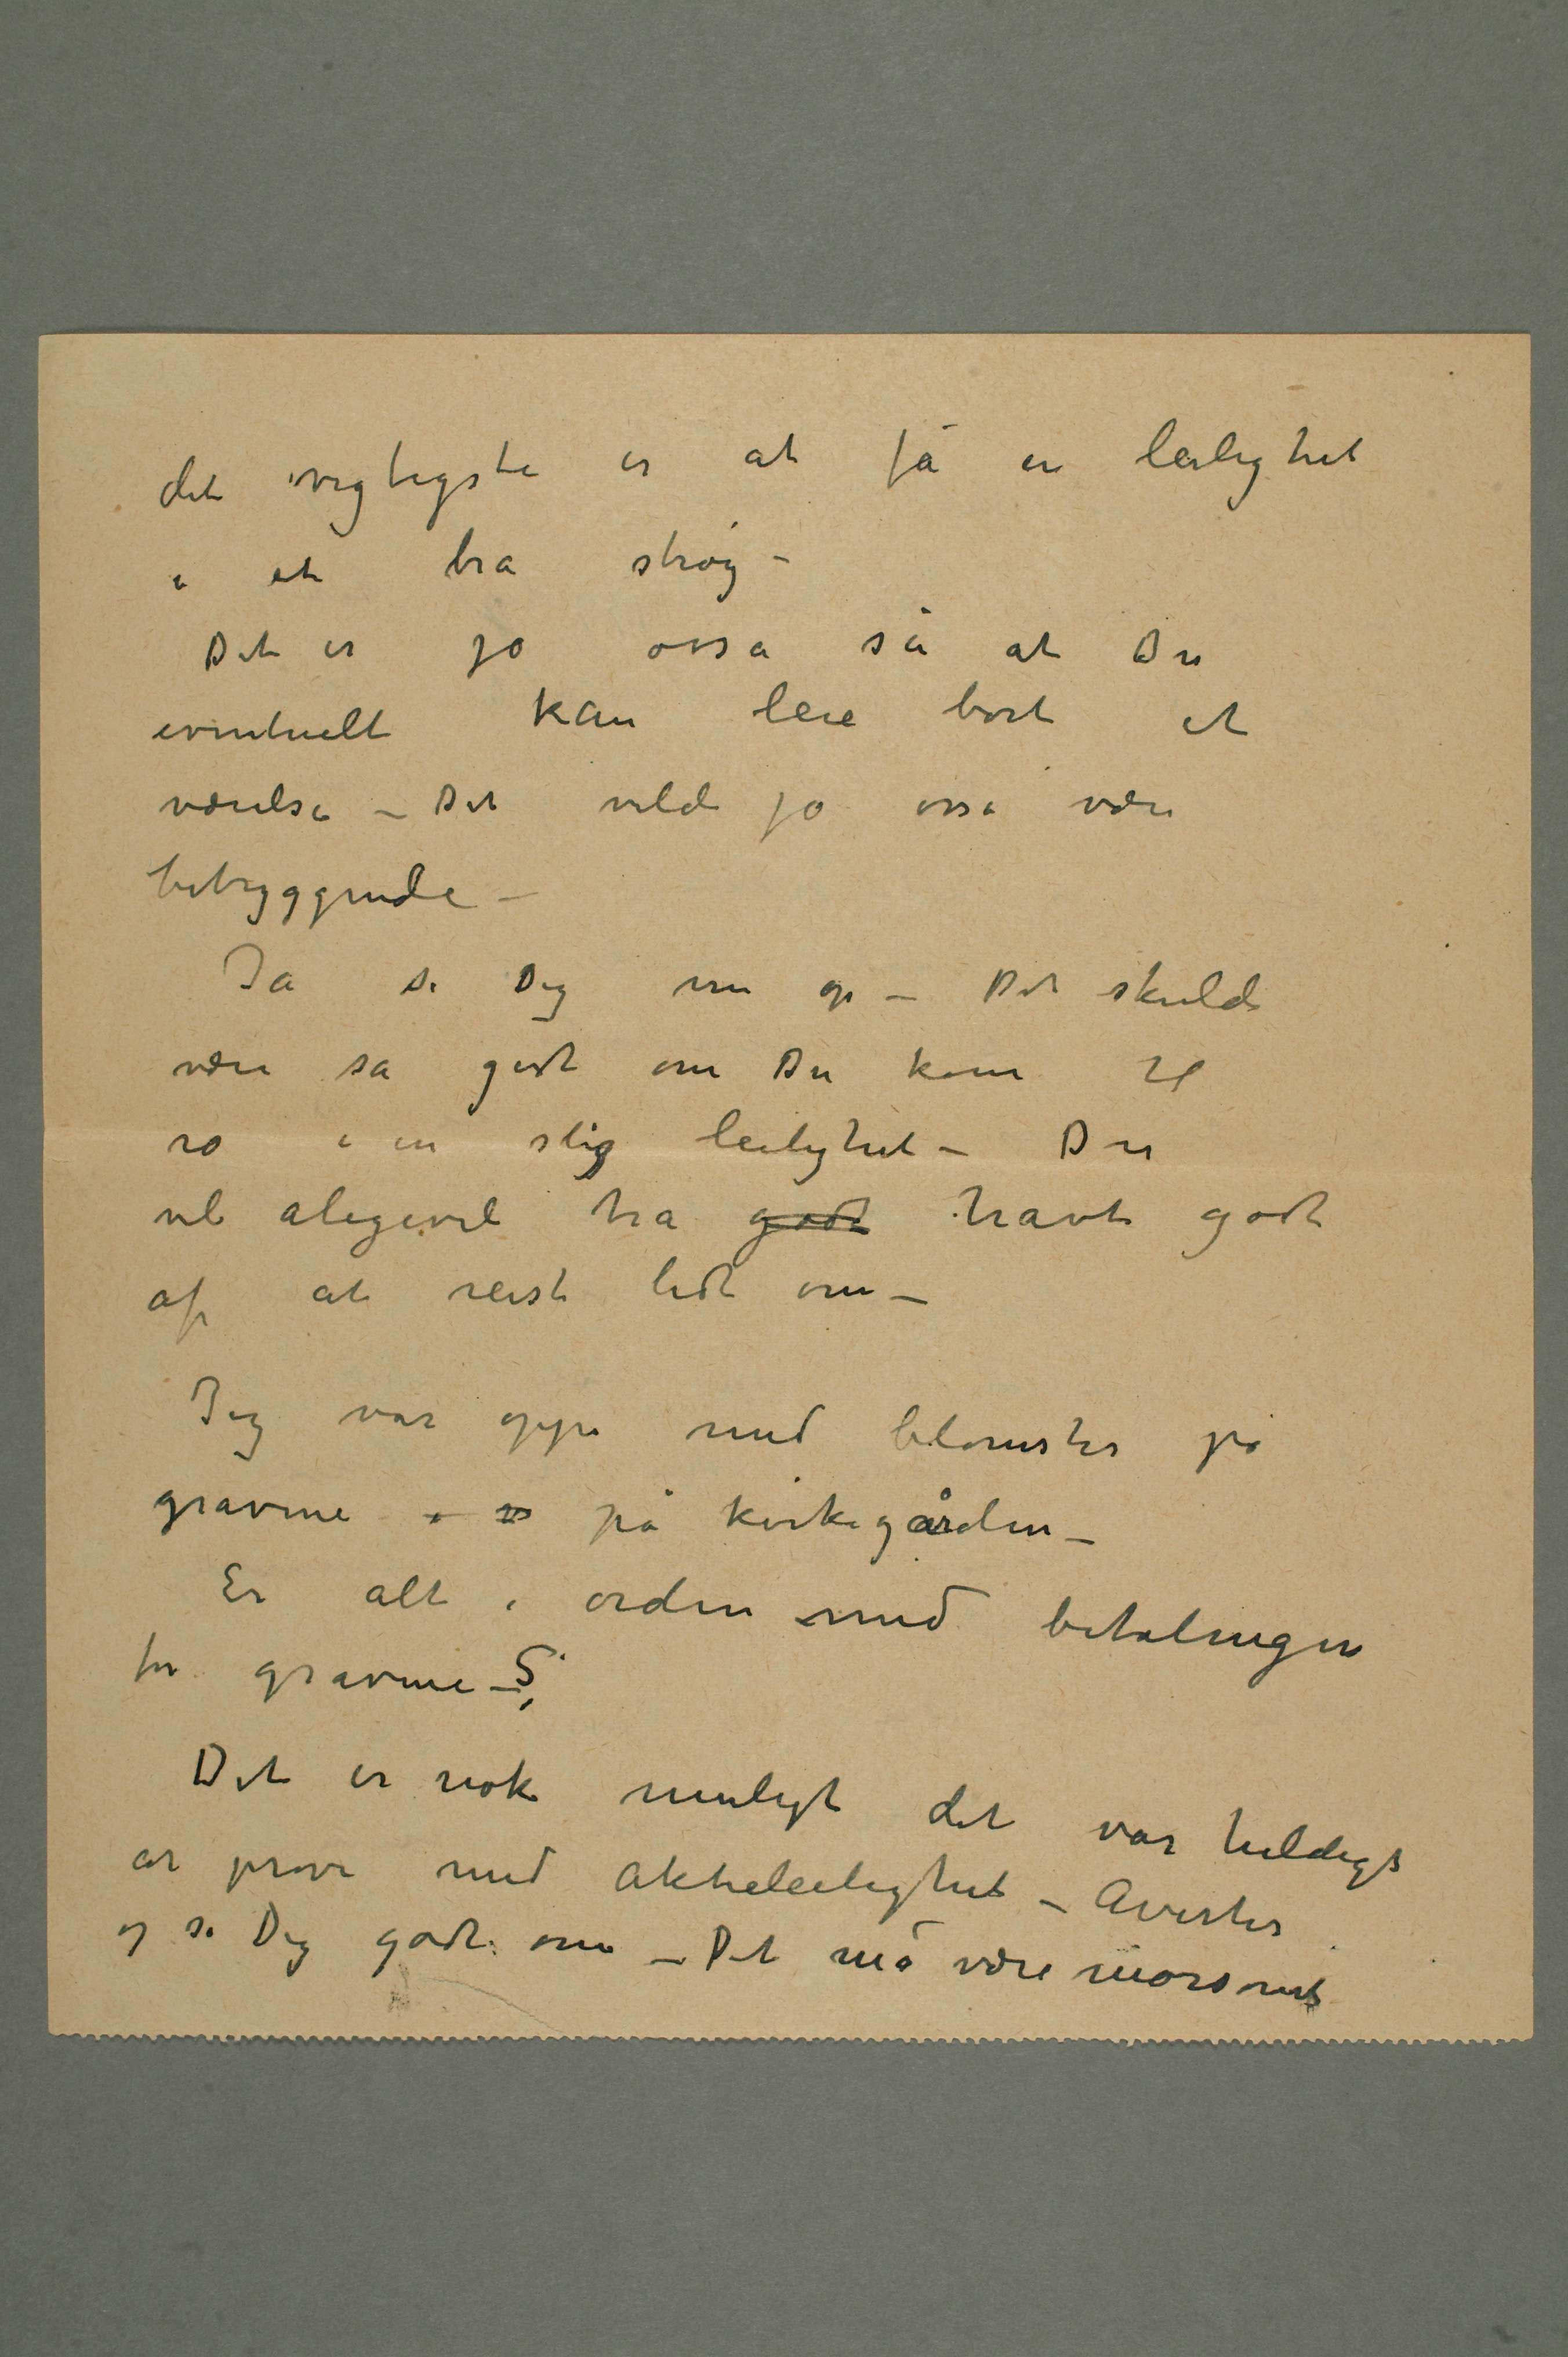 det vigtigste er at få en leilighet
i et bra strøg –
Det er jo osså så at Du
eventuelt kan leie bort et
værelse – Det vilde jo osså være
betryggende –
Ja se Dig nu op – Det skulde
være så godt om Du kom til
ro i en slig leilighet – Du
vil aligevel ha godt havt godt
af at reist lidt om –
Jeg var oppe med blomster på
gravene på kirkegården –
Er alt i orden med betalingen
for gravene –?
Det er nok muligt det var heldigt
at prøve med aktieleilighet – Averter
og se Dig godt om – Det må være morsomt